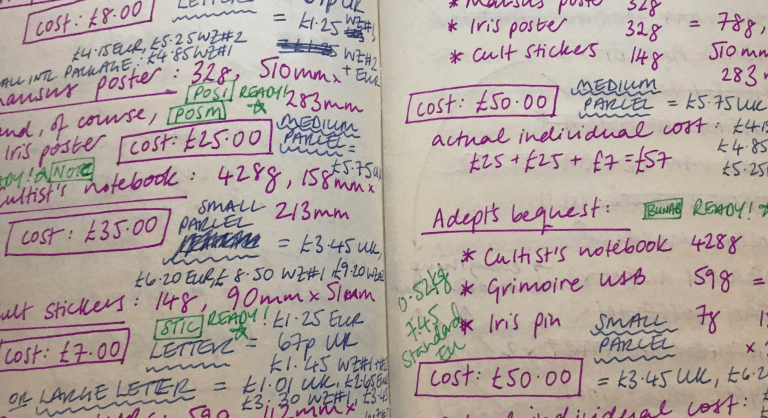 cost: £8.00
LETTER
67p UK
= £1.25 WZ#1,
WZ#2
+ EUR
£4.15EUR, £5.25 WZ#2
ALL INTL PACKAGE: £4.85 WZ#1
mansus poster : 328, 510mm x
POSI READY!!
283mm
and, of course,
POSM
Iris poster
cost: £25.00
MEDIUM
PARCEL =
£5.75UK
READY!
NOTE
Cultist's notebook : 428g, 158mm x
213mm
cost: £35.00
SMALL
PARCEL
= £3.45 UK,
£6.20 EUR, £8.50 WZ#1 £9.20 WZ#2
cult stickers : 148, 90mm x 51mm
STIC READY!
£1.25 EUR
cost: £7.00
LETTER = 67p UK
£1.45 WZ#1+#2
OR LARGE LETTER = £1.01 UK, £2.65 EUR
£3.30 WZ#1, £3.45
59g
112mm x
* Mansus poster 328
* Iris poster 328 = 788,
* Cult stickers 148 510mm
283 m
cost: £50.00
MEDIUM
PARCEL = £5.75 UK
actual individual cost : £4.15
£25 + £25 + £7 = £57
£4.85
£5.25
Adept's bequest :
BUNAB READY!
* Cultist's notebook 428g
* Grimoire USB 59g =
* Iris pin 7g
0.52kg
745
Standard
EU
SMALL
PARCEL
cost: £50.00
= £3.45 UK, £6.2
individual cost :